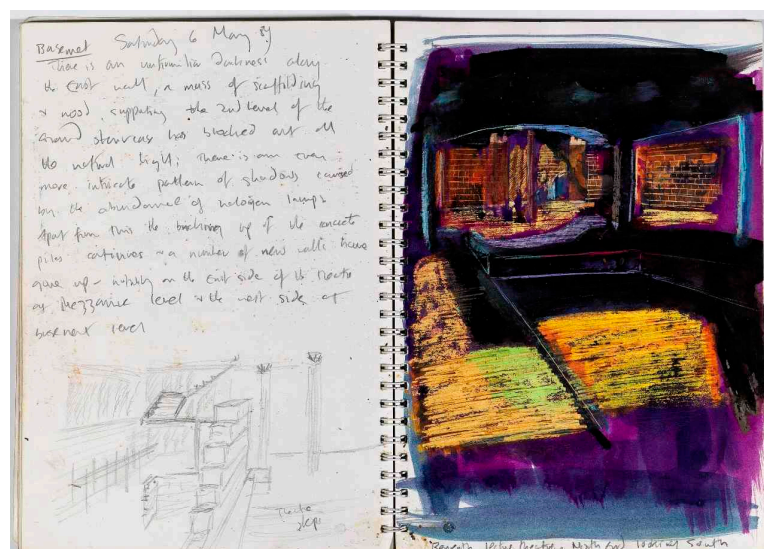 Basemet Saturday 6 May 89
There is an unfamiliar darkness along
the East wall, a mass of scaffolding
& wood supporting the 2nd level of the
Grand staircase has blocked out all
the natural light; There is an even
more intricate pattern of shadows caused
by the abundance of halogen lamps
Apart from this the bricking up of the concrete
piles continues & a number of new walls have
gone up - notably on the East side of the theatre
at Mezzanine level & the west side at
basement level
Theatre
steps
Beneath lecture theatre, North End looking South